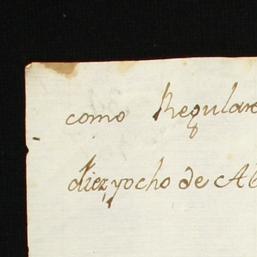 como Regular
diez, yocho de Ab